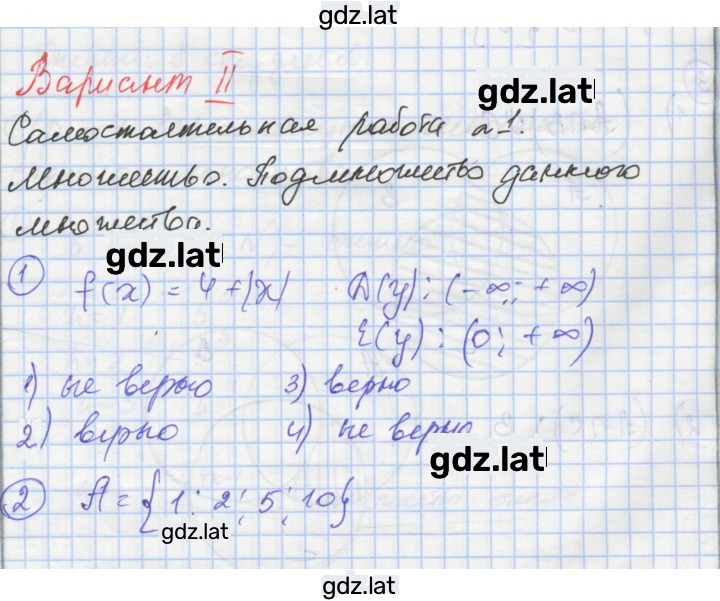 gdz.lat
Вариант II
gdz.lat
Самостоятельная работа №1.
Множество. Подмножество данного
множества.
gdz.lat
1 f(x) = 4+|x| D(y): (-∞; +∞)
E(y): (0; +∞)
1) не верно 3) верно
2) верно 4) не верно
gdz.lat
2 A = {1; 2; 5; 10}
gdz.lat
gdz.lat